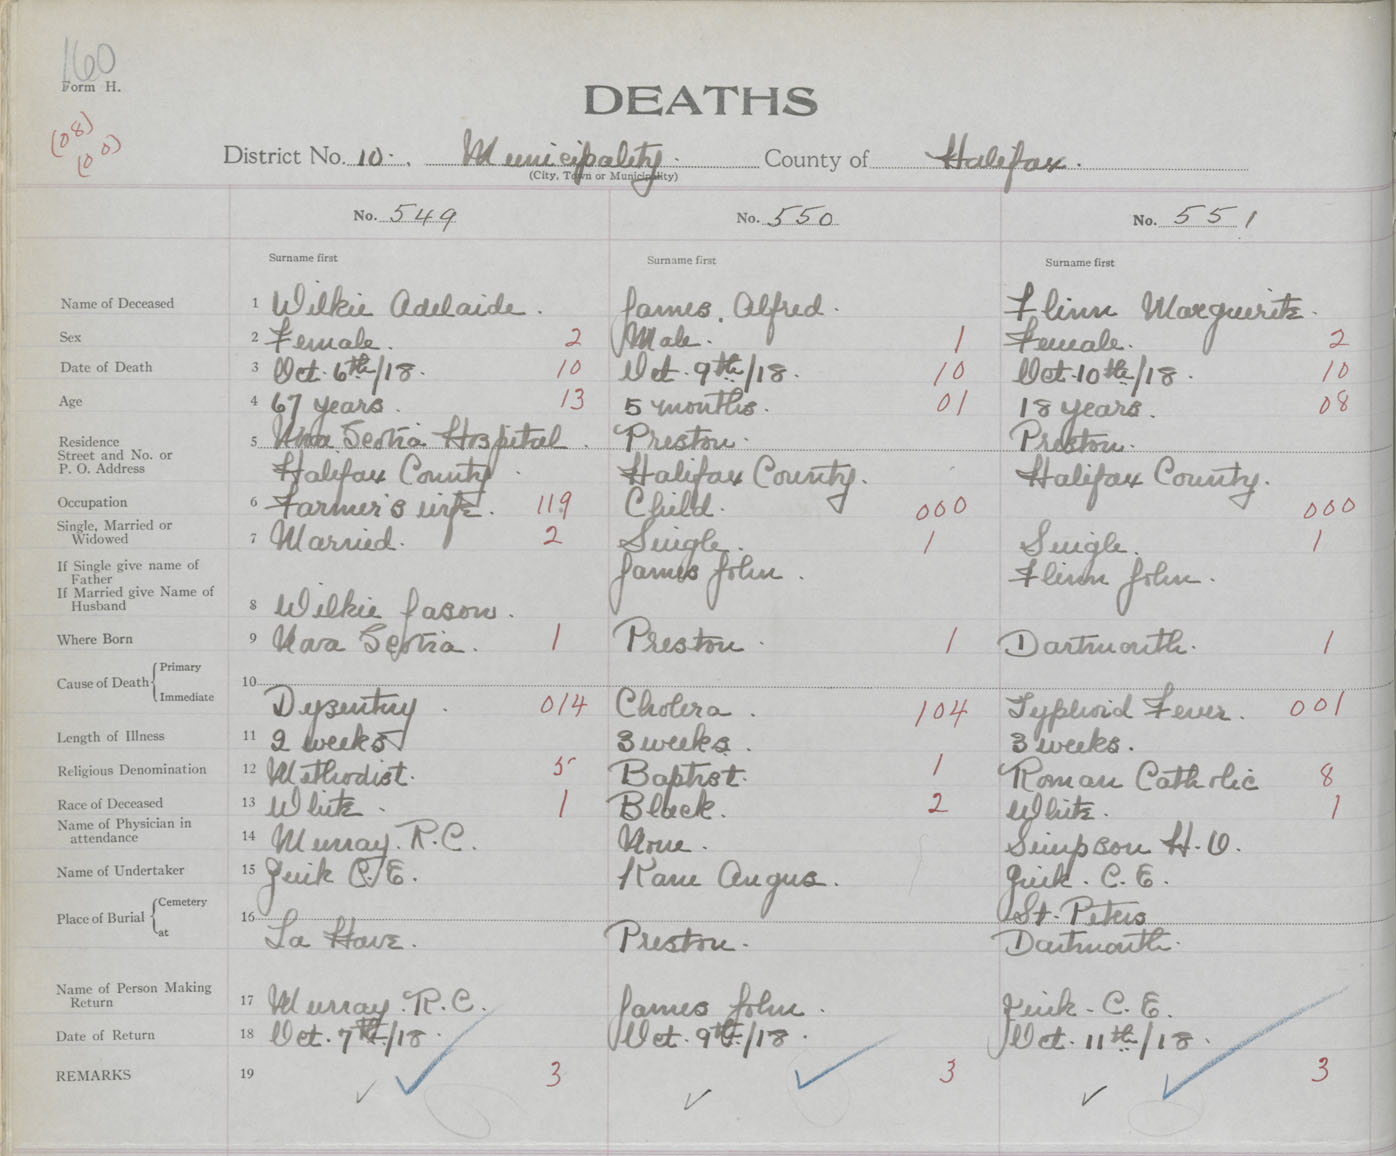 160
Form H.
(08)
(00)
DEATHS
District No. 10. Municipality. County of Halifax.
(City, Town or Municipality)
No. 549 No. 550 No. 551
Surname first Surname first Surname first
Name of Deceased 1 Wilkie Adelaide. James, Alfred. Flinn Marguerite.
Sex 2 Female. 2 Male. 1 Female. 2
Date of Death 3 Oct. 6th/18. 10 Oct. 9th/18. 10 Oct. 10th/18. 10
Age 4 67 years. 13 5 months. 01 18 years. 08
Residence
Street and No. or 5 Nova Scotia Hospital. Preston. Preston.
P. O. Address Halifax County. Halifax County. Halifax County.
Occupation 6 Farmer's wife. 119 Child. 000 000
Single, Married or
Widowed 7 Married. 2 Single. 1 Single. 1
If Single give name of
Father James John. Flinn John.
If Married give Name of
Husband 8 Wilkie Jason.
Where Born 9 Nova Scotia. 1 Preston. 1 Dartmouth. 1
Cause of Death Primary 10
Immediate Dysentry. 014 Cholera. 104 Typhoid Fever. 001
Length of Illness 11 2 weeks 3 weeks. 3 weeks.
Religious Denomination 12 Methodist. 5 Baptist. 1 Roman Catholic 8
Race of Deceased 13 White. 1 Black. 2 White. 1
Name of Physician in
attendance 14 Murray. R.C. None. Simpson H.O.
Name of Undertaker 15 C.E. Kane Angus. C.E.
Place of Burial Cemetery 16 St. Peters
at La Have. Preston. Dartmouth.
Name of Person Making
Return 17 Murray. R.C. James John. C.E.
Date of Return 18 Oct. 7th/18. Oct. 9th/18. Oct. 11th/18.
REMARKS 19 3 3 3